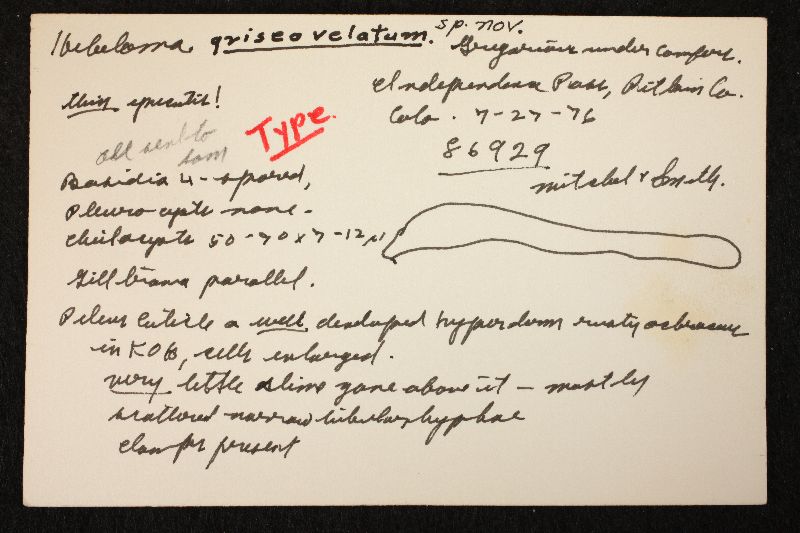 Hebeloma griseovelatum. sp. nov.
Gregarious under conifers.
Independence Pass, Pitkin Co.
Colo. 7-27-76
86929
Mitchel & Smith.
this epicutis!
all sent to
Sam
Type.
Basidia 4-spored,
Pleurocysts none.
Cheilocysts 50-70 x 7-12 µ
Gill trama parallel.
Pileus cuticle a well developed hypoderm rusty ochraceus
in KOH, cells enlarged.
very little slime zone above it - mostly
scattered narrow tubular hyphae
clamps present